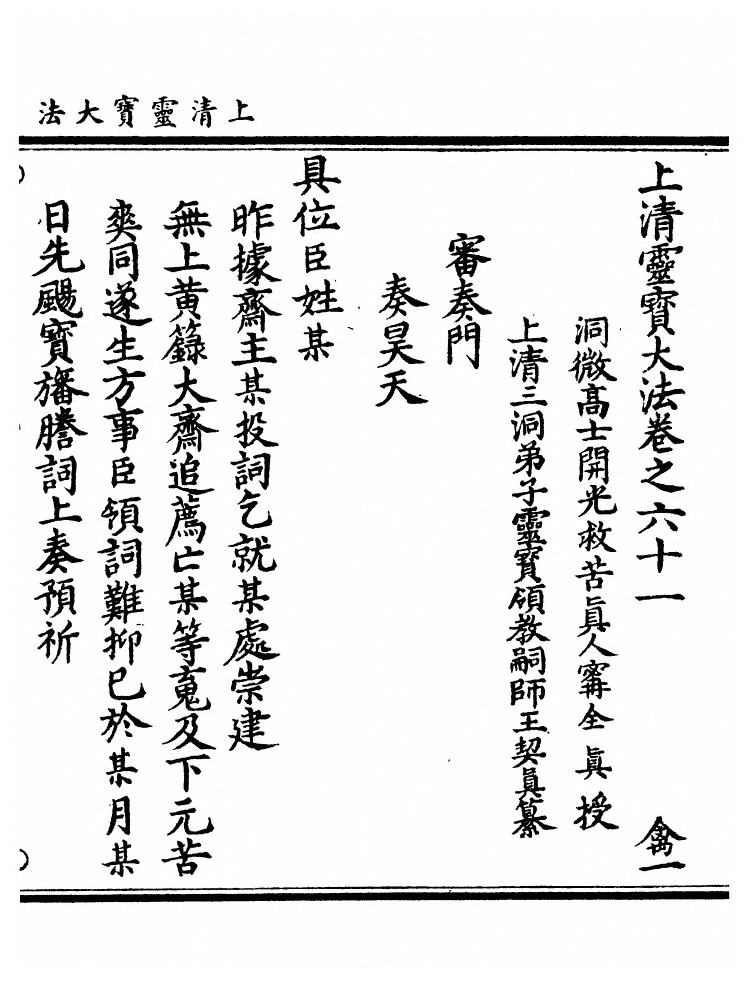 上清靈寶大法
上清靈寶大法卷之六十一 禽一
洞微高士開光救苦眞人寗全眞授
上清三洞弟子靈寶領教嗣師王契眞纂
審奏門
奏昊天
具位臣姓某
昨據齋主某投詞乞就某處崇建
無上黃籙大齋追薦亡某等䰟及下元苦
爽同遂生方事臣領詞難抑已於某月某
日先颺寶旛謄詞上奏預祈